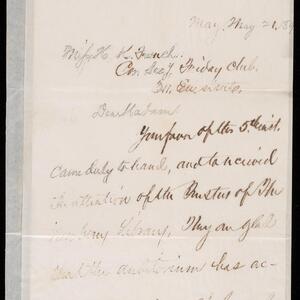 May, May 21, 189
Miss H. K. French,
Cor. Sec'y Friday Club,
Dear Madam:
Your favor of the 5th inst.
came duly to hand, and received
the attention of the Trustees of The
Newberry Library. They are glad
that the auditorium has ac-